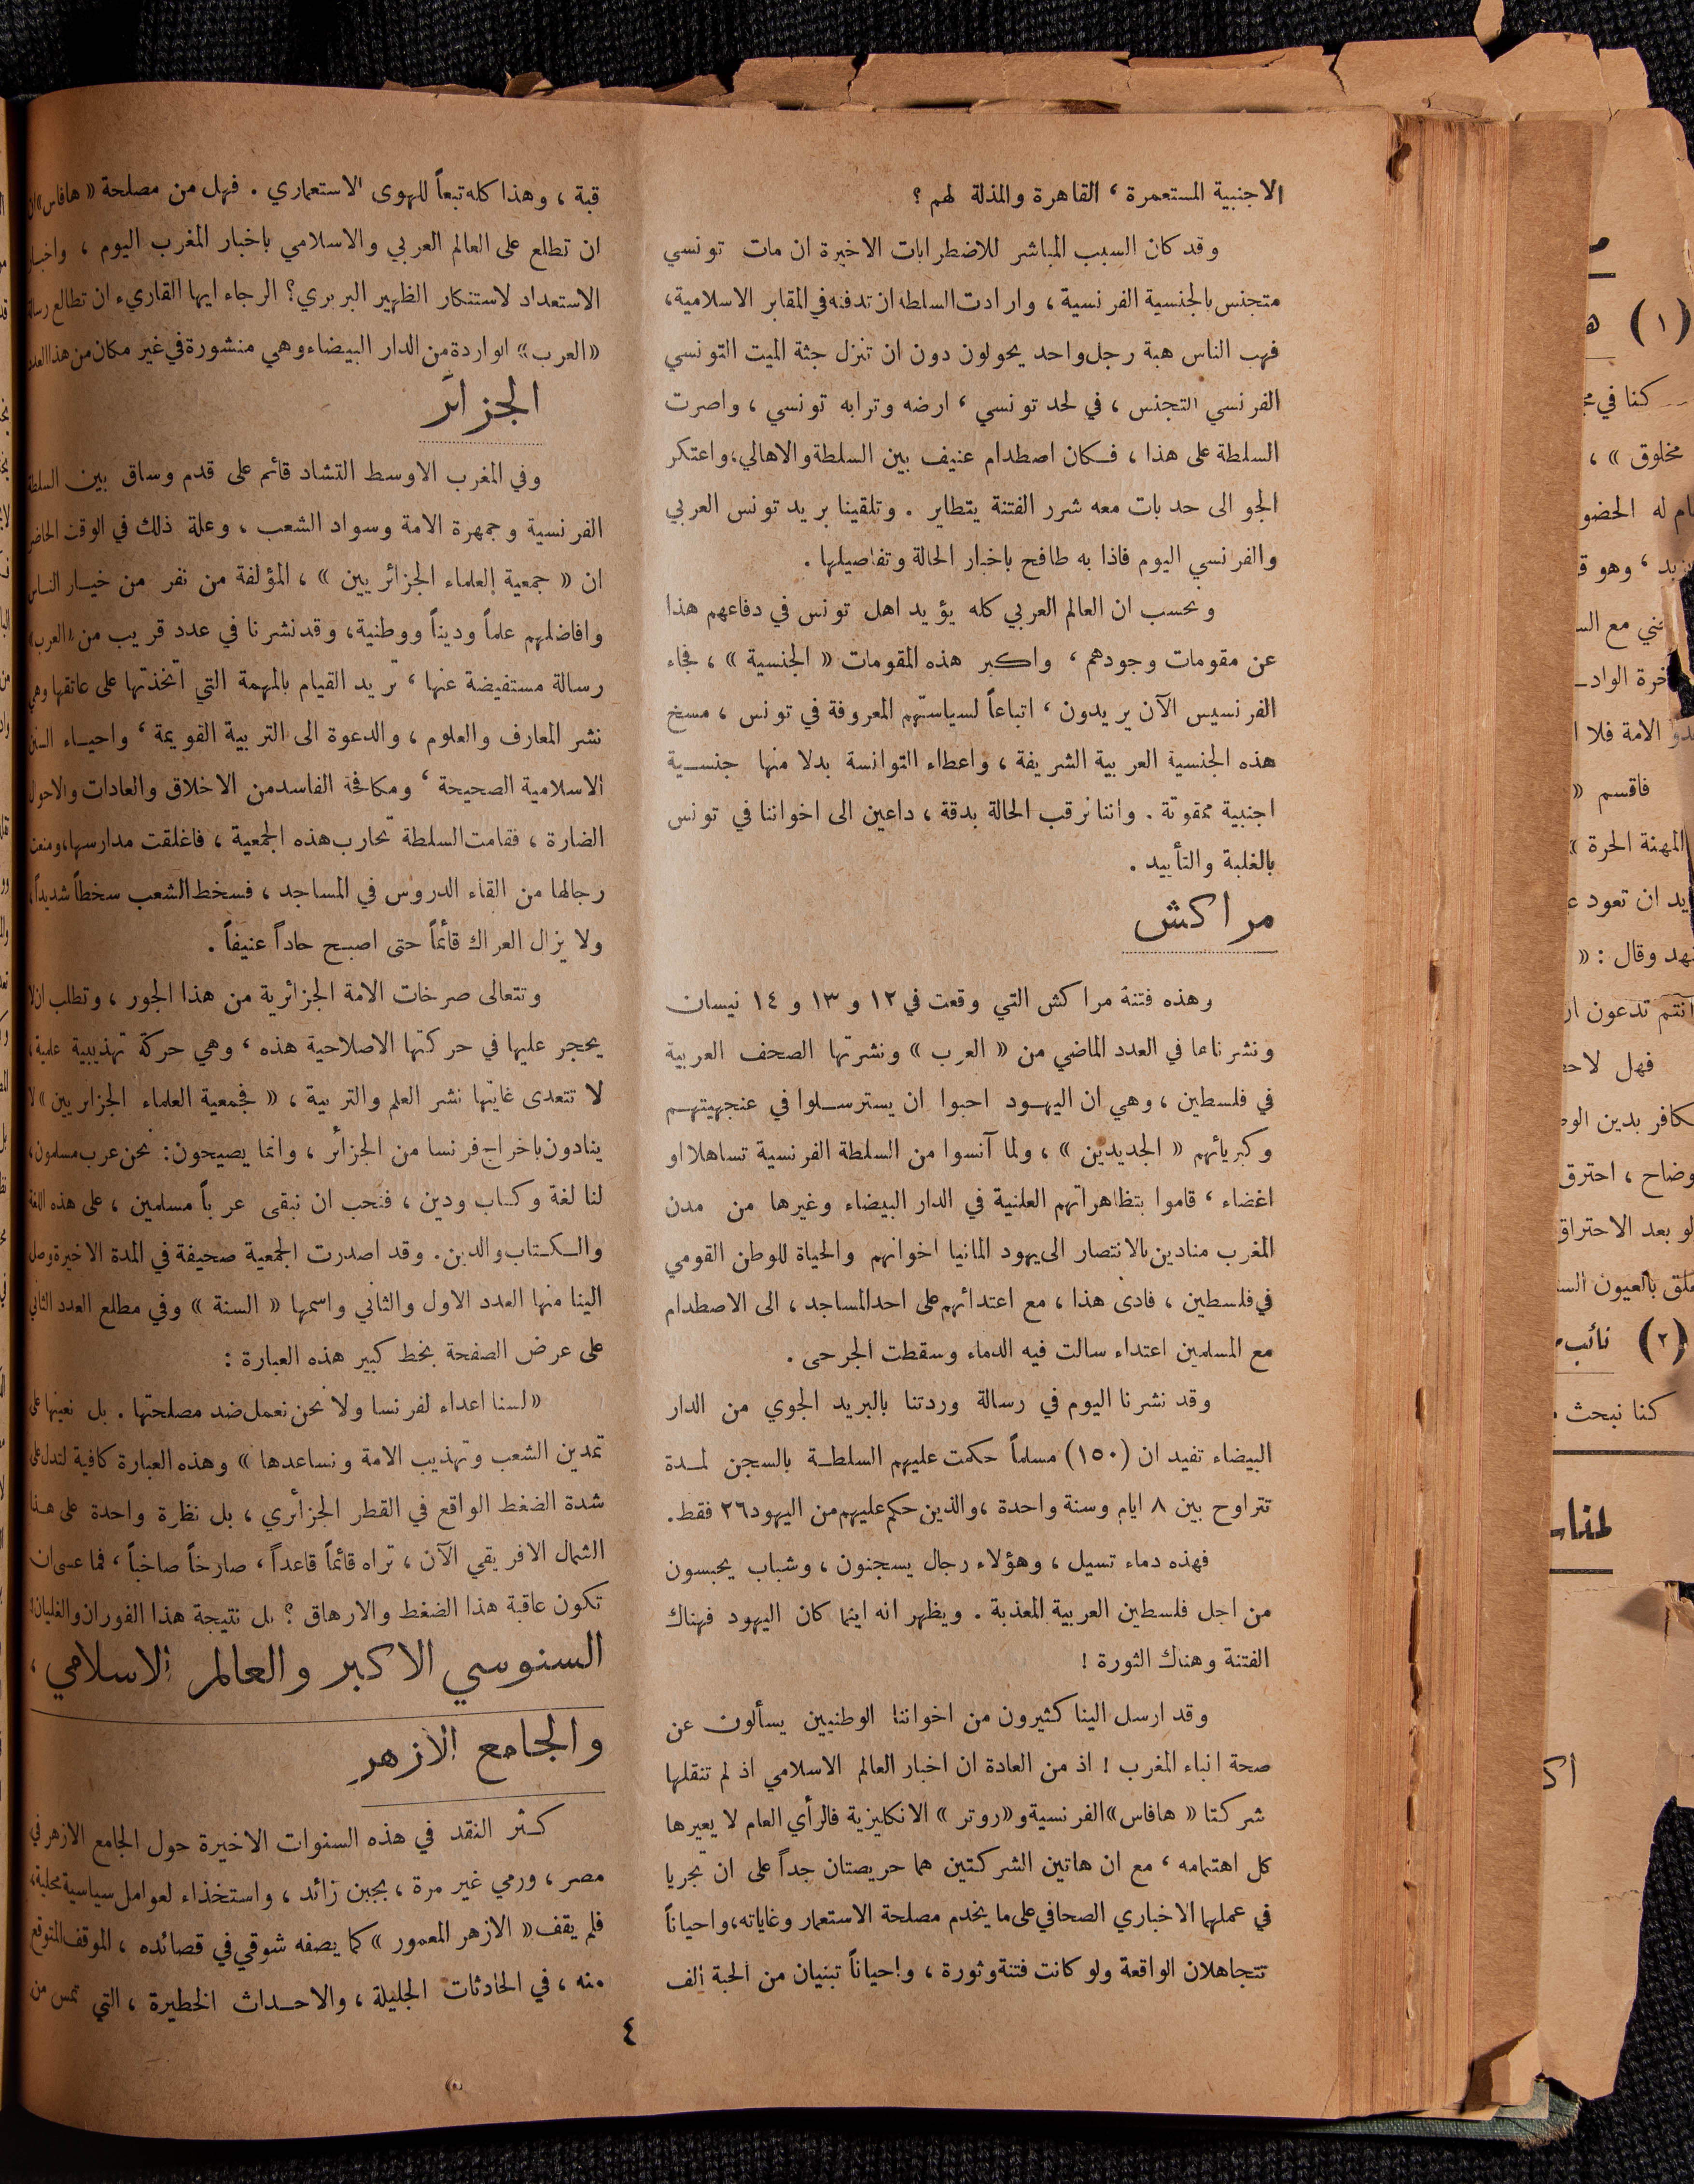 الاجنبية المستعمرة ، القاهرة والمذلة لهم ؟
وقد كان السبب المباشر للاضطرابات الاخيرة ان مات تونسي
متجنس بالجنسية الفرنسية ، وارادت السلطه ان تدفنه في المقابر الاسلامية،
فهب الناس هبة رجل واحد يحولون دون ان تنزل جثة الميت التونسي
الفرنسي التجنس ، في لحد تونسي ، ارضه وترابه تونسي ، واصرت
السلطة على هذا ، فكان اصطدام عنيف بين السلطة والاهالي، واعتكر
الجو الى حد بات معه شرر الفتنة يتطاير . وتلقينا بريد تونس العربي
والفرنسي اليوم فاذا به طافح باخبار الحالة وتفاصيلها .
ونحسب ان العالم العربي كله يؤيد اهل تونس في دفاعهم هذا
عن مقومات وجودهم ، واكبر هذه المقومات « الجنسية » ، فجاء
الفرنسيس الآن يريدون ، اتباعاً لسياستهم المعروفة في تونس ، مسخ
هذه الجنسية العربية الشريفة ، واعطاء التوانسة بدلا منها جنسية
اجنبية ممقوتة . واننا نرقب الحالة بدقة ، داعين الى اخواننا في تونس
بالغلبة والتأييد .
مراكش
وهذه فتنة مراكش التي وقعت في ١٢ و ١٣ و ١٤ نيسان
ونشرناها في العدد الماضي من « العرب » ونشرتها الصحف العربية
في فلسطين ، وهي ان اليهود احبوا ان يسترسلوا في عنجهيتهم
وكبريائهم « الجديدين » ، ولما آنسوا من السلطة الفرنسية تساهلا او
اغضاء ، قاموا بتظاهراتهم العلنية في الدار البيضاء وغيرها من مدن
المغرب منادين بالانتصار الى يهود المانيا اخوانهم والحياة للوطن القومي
في فلسطين ، فادى هذا ، مع اعتدائهم على احد المساجد ، الى الاصطدام
مع المسلمين اعتداء سالت فيه الدماء وسقطت الجرحى .
وقد نشرنا اليوم في رسالة وردتنا بالبريد الجوي من الدار
البيضاء تفيد ان (١٥٠) مسلماً حكمت عليهم السلطة بالسجن لمدة
تتراوح بين ٨ ايام وسنة واحدة ، والذين حكم عليهم من اليهود ٢٦ فقط.
فهذه دماء تسيل ، وهؤلاء رجال يسجنون ، وشباب يحبسون
من اجل فلسطين العربية المعذبة . ويظهر انه اينما كان اليهود فهناك
الفتنة وهناك الثورة !
وقد ارسل الينا كثيرون من اخواننا الوطنيين يسألون عن
صحة انباء المغرب ! اذ من العادة ان اخبار العالم الاسلامي اذ لم تنقلها
شركتا « هافاس » الفرنسية و « روتر » الانكليزية فالرأي العام لا يعيرها
كل اهتمامه ، مع ان هاتين الشركتين هما حريصتان جداً على ان تجريا
في عملهما الاخباري الصحافي على ما يخدم مصلحة الاستعمار وغاياته، واحياناً
تتجاهلان الواقعة ولو كانت فتنة وثورة ، واحياناً تبنيان من الحبة الف
قبة ، وهذا كله تبعاً للهوى الاستعماري . فهل من مصلحة « هافاس »
ان تطلع على العالم العربي والاسلامي باخبار المغرب اليوم ، واخبار
الاستعداد لاستنكار الظهير البربري ؟ الرجاء ايها القاريء ان تطالع رسالة
« العرب » الواردة من الدار البيضاء وهي منشورة في غير مكان من هذا العدد
الجزائر
وفي المغرب الاوسط التشاد قائم على قدم وساق بين السلطة
الفرنسية وجمهرة الامة وسواد الشعب ، وعلة ذلك في الوقت الحاضر
ان « جمعية العلماء الجزائريين » ، المؤلفة من نفر من خيار الناس
وافاضلهم علماً وديناً ووطنية، وقد نشرنا في عدد قريب من « العرب »
رسالة مستفيضة عنها ، تريد القيام بالمهمة التي اتخذتها على عاتقها وهي
نشر المعارف والعلوم ، والدعوة الى التربية القويمة ، واحياء السنن
الاسلامية الصحيحة ، ومكافحة الفاسد من الاخلاق والعادات والاحوال
الضارة ، فقامت السلطة تحارب هذه الجمعية ، فاغلقت مدارسها، ومنعت
رجالها من القاء الدروس في المساجد ، فسخط الشعب سخطاً شديداً،
ولا يزال العراك قائماً حتى اصبح حاداً عنيفاً .
وتتعالى صرخات الامة الجزائرية من هذا الجور ، وتطلب ان لا
يحجر عليها في حركتها الاصلاحية هذه ، وهي حركة تهذيبية علمية،
لا تتعدى غايتها نشر العلم والتربية ، « فجمعية العلماء الجزائريين » لا
ينادون باخراج فرنسا من الجزائر ، وانما يصيحون: نحن عرب مسلمون،
لنا لغة وكتاب ودين ، فنحب ان نبقى عرباً مسلمين ، على هذه اللغة
والكتاب والدين. وقد اصدرت الجمعية صحيفة في المدة الاخيرة وصل
الينا منها العدد الاول والثاني واسمها « السنة » وفي مطلع العدد الثاني
على عرض الصفحة بخط كبير هذه العبارة :
« لسنا اعداء لفرنسا ولا نحن نعمل ضد مصلحتها . بل نعينها على
تمدين الشعب وتهذيب الامة ونساعدها » وهذه العبارة كافية لتدل على
شدة الضغط الواقع في القطر الجزائري ، بل نظرة واحدة على هذا
الشمال الافريقي الآن ، تراه قائماً قاعداً ، صارخاً صاخباً ، فما عسى ان
تكون عاقبة هذا الضغط والارهاق ؟ بل نتيجة هذا الفوران والغليان؟
السنوسي الاكبر والعالم الاسلامي ،
والجامع الازهر
كثر النقد في هذه السنوات الاخيرة حول الجامع الازهر في
مصر ، ورمي غير مرة ، بجبن زائد ، واستخذاء لعوامل سياسية محلية،
فلم يقف « الازهر المعمور » كما يصفه شوقي في قصائده ، الموقف المتوقع
منه ، في الحادثات الجليلة ، والاحداث الخطيرة ، التي تمس من
٤
(١)
كنا في
مخلوق » ،
له الحضو
، وهو
مع
الامة فلا
فاقسم «
المهنة الحرة »
ان تعود
وقال : «
انتم تدعون
فهل
بدين
وضاح ، احترق
بعد الاحتراق
بالعيون
(٢) نائب
كنا نبحث